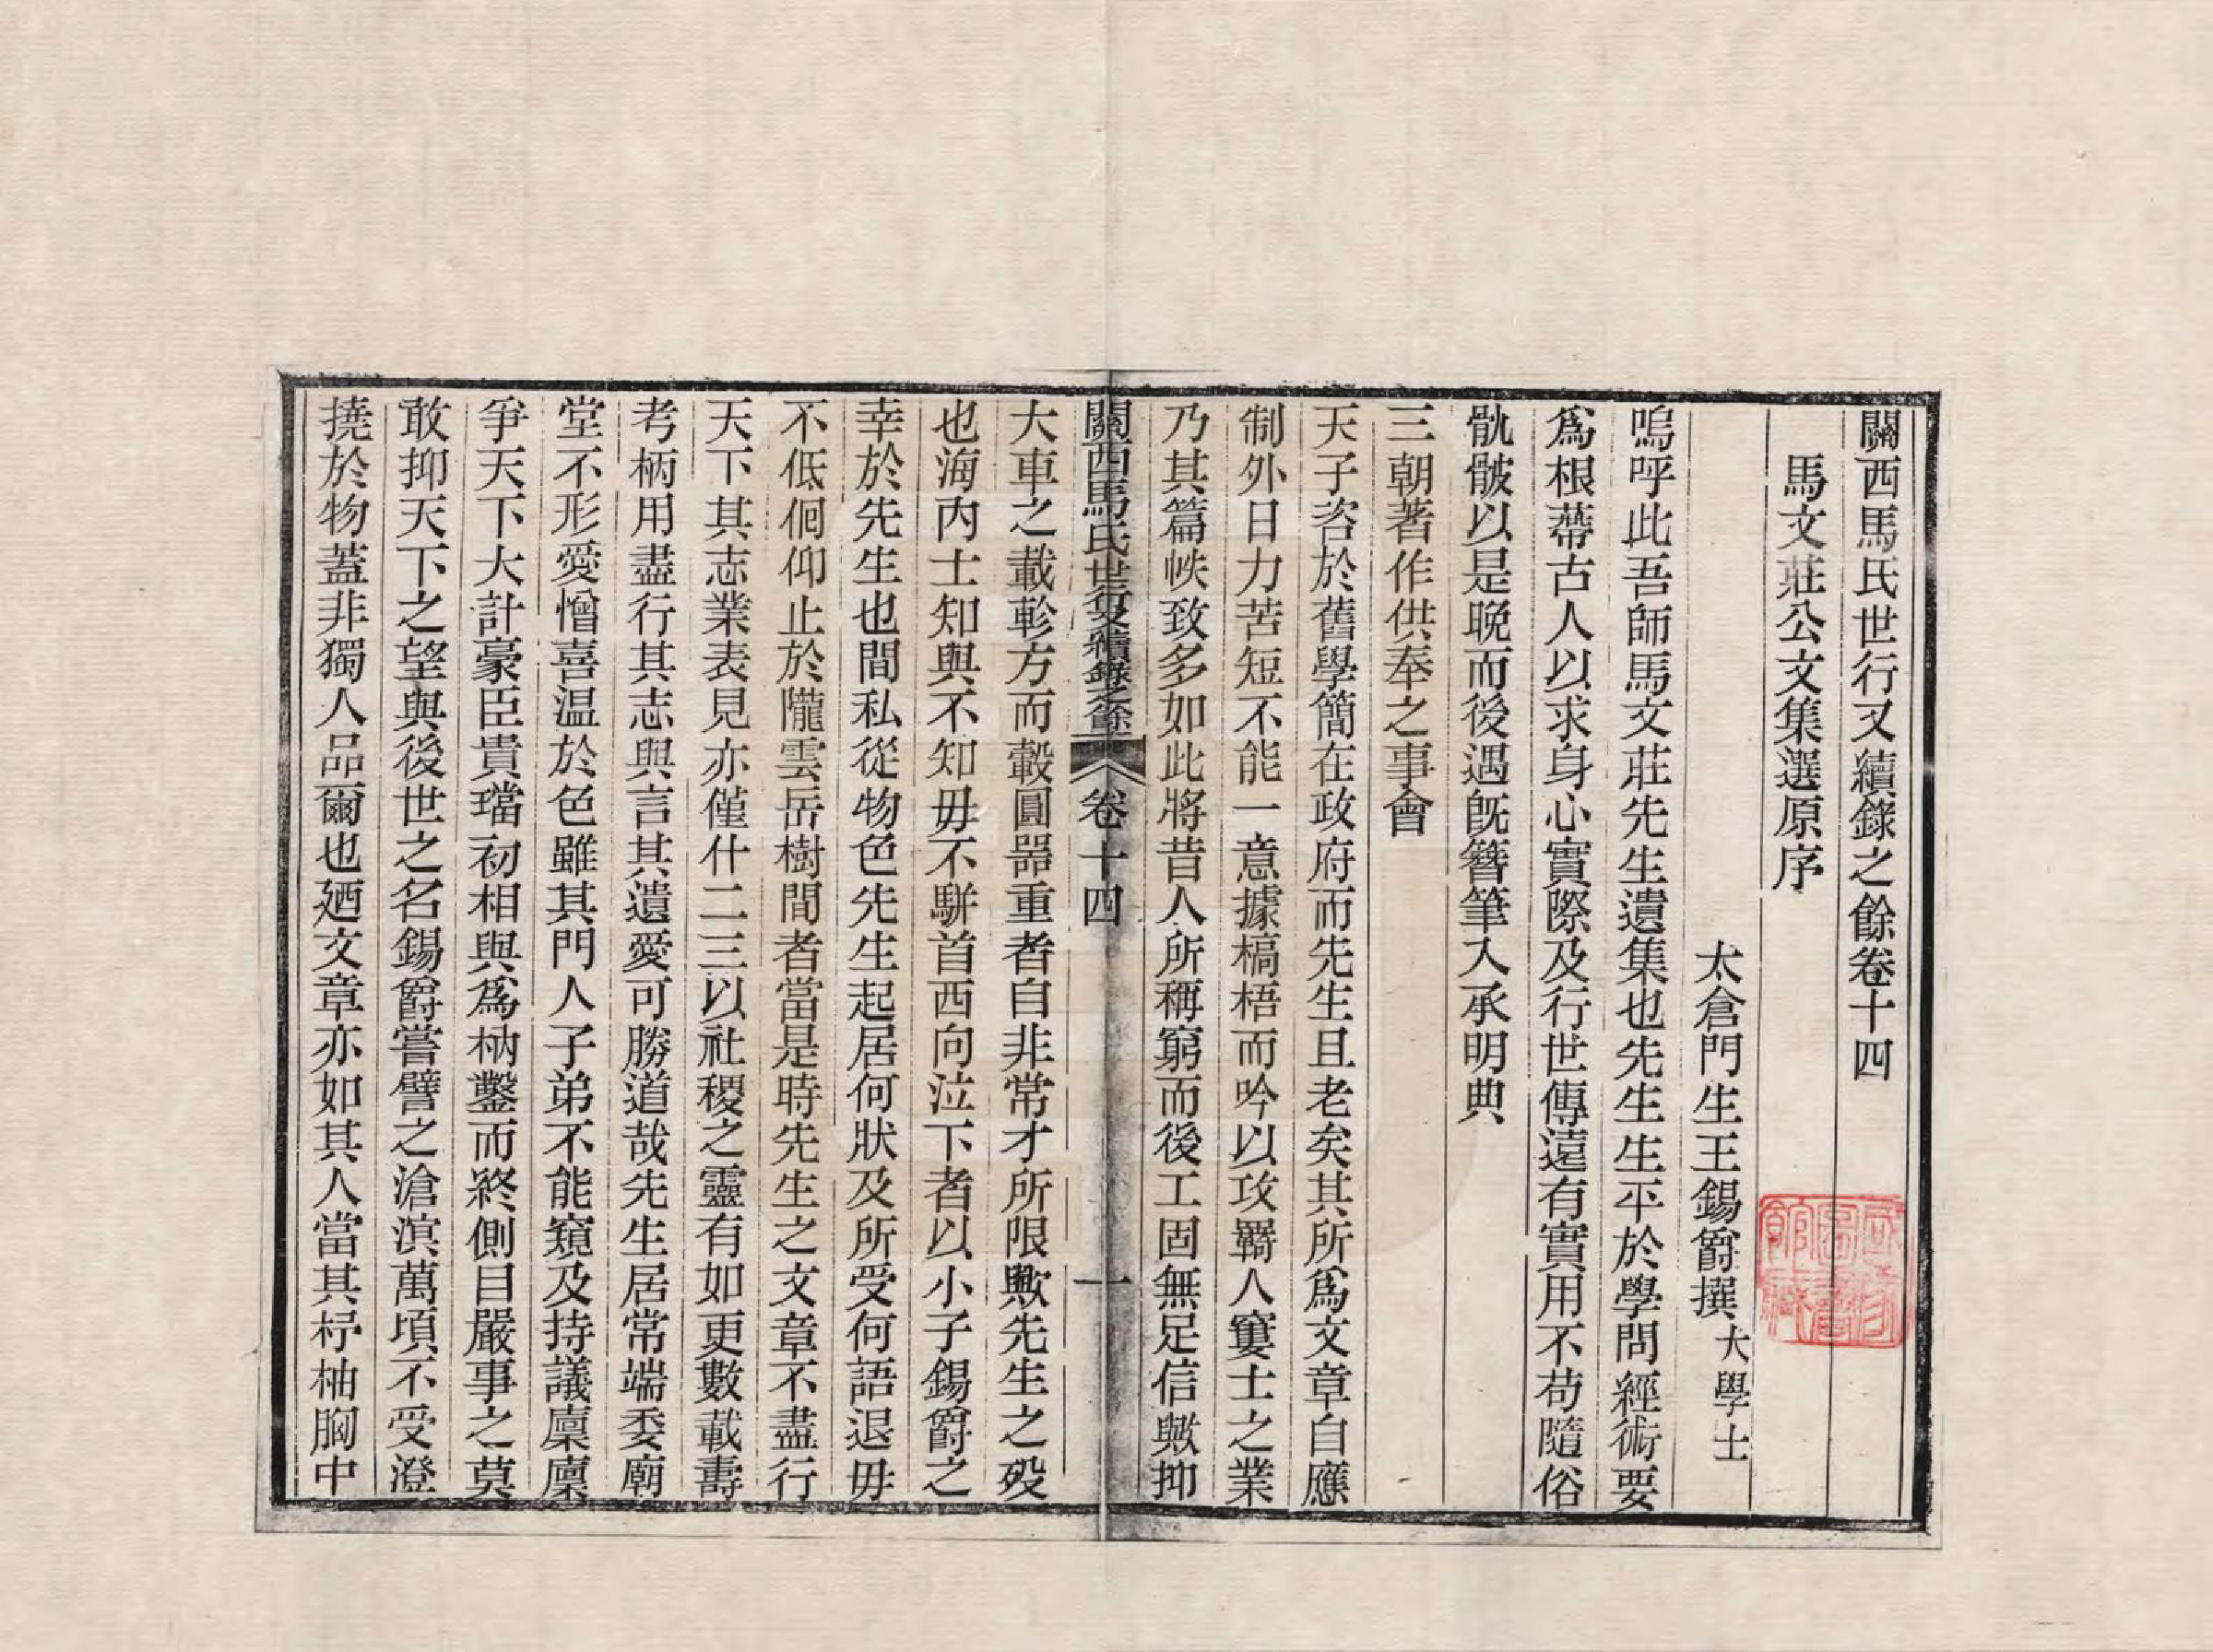 關西馬氏世行又續錄之餘卷十四
馬文莊公文集選原序
太倉門生王錫爵撰大學士
嗚呼此吾師馬文莊先生遺集也先生生平於學問經術要
爲根蔕古人以求身心實際及行世傳遠有實用不苟隨俗
骩骳以是晩而後遇旣簪筆入承明典
三朝著作供奉之事會
天子咨於舊學簡在政府而先生且老矣其所爲文章自應
制外日力苦短不能一意據槁梧而吟以攻羇人窶士之業
乃其篇帙致多如此將昔人所稱窮而後工固無足信歟抑
關西馬氏世行又續錄之餘 卷十四 一
大車之載軫方而轂圓器重者自非常才所限歟先生之歿
也海內士知與不知毋不駢首西向泣下者以小子錫爵之
幸於先生也間私從物色先生起居何狀及所受何語退毋
不低佪仰止於隴雲岳樹間者當是時先生之文章不盡行
天下其志業表見亦僅什二三以社稷之靈有如更數載壽
考柄用盡行其志與言其遺愛可勝道哉先生居常端委廟
堂不形愛憎喜溫於色雖其門人子弟不能窺及持議廩廩
爭天下大計豪臣貴璫初相與爲枘鑿而終側目嚴事之莫
敢抑天下之望與後世之名錫爵嘗譬之滄溟萬頃不受澄
撓於物蓋非獨人品爾也廼文章亦如其人當其杼柚胸中